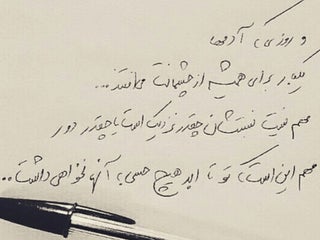 و روزی، آدمها
یکبار برای همیشه از چشمانت می‌افتند...
مهم نیست نسبتشان چقدر نزدیک است یا چقدر دور
مهم این است که تو تا ابد هیچ حسی به آنها نخواهی داشت..